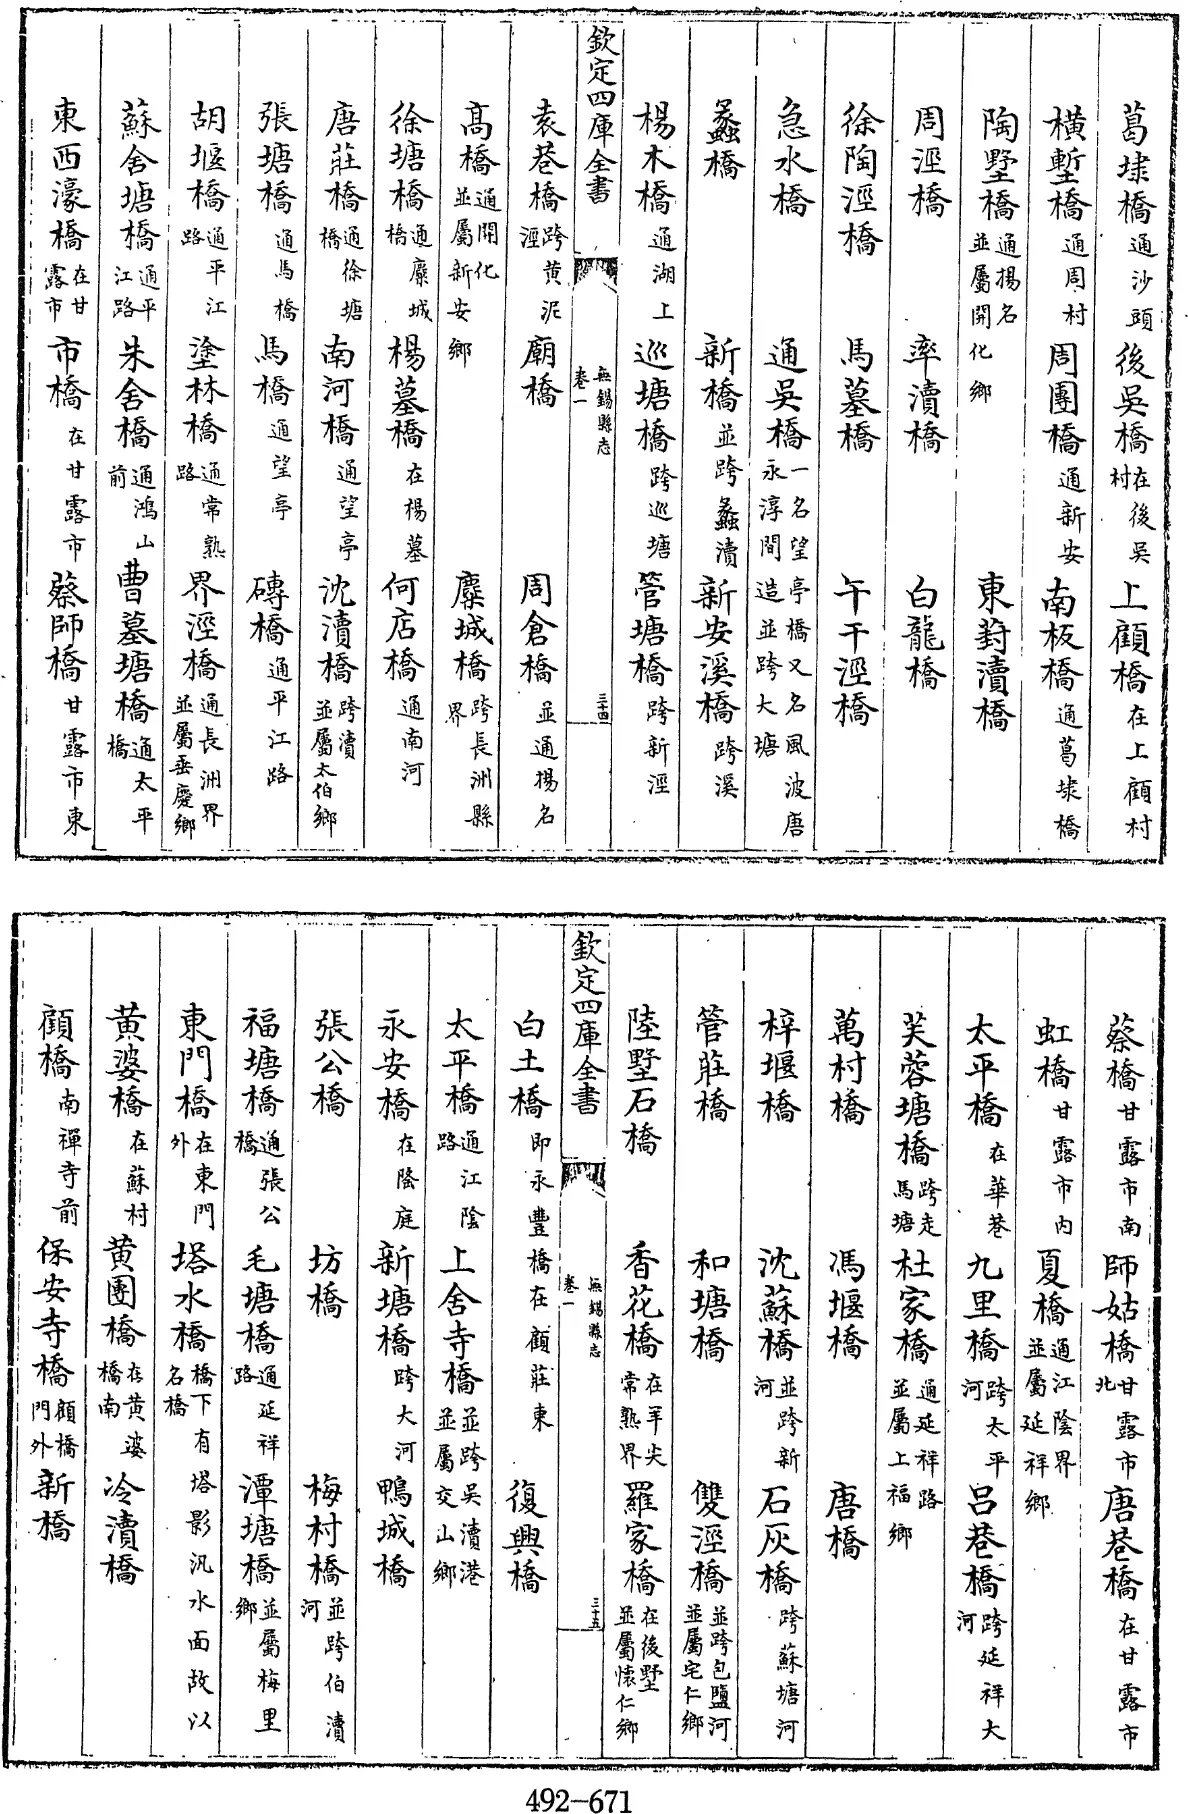 葛埭橋通沙頭 後吳橋在後吳村 上顧橋在上顧村
橫塹橋通周村 周團橋通新安 南板橋通葛埭橋
陶墅橋通揚名並屬開化鄉 東葑瀆橋
周涇橋 率瀆橋 白龍橋
徐陶涇橋 馬墓橋 午干涇橋
急水橋 通吳橋一名望亭橋又名風波唐永淳間造並跨大塘
蠡橋 新橋並跨蠡瀆 新安溪橋跨溪
楊木橋通湖上 巡塘橋跨巡塘 管塘橋跨新涇
欽定四庫全書 無錫縣志卷一 三十四
袁巷橋跨黃泥涇 廟橋 周倉橋並通揚名
高橋通開化並屬新安鄉 麋城橋跨長洲縣界
徐塘橋通麋城橋 楊墓橋在楊墓 何店橋通南河
唐莊橋通徐塘橋 南河橋通望亭 沈瀆橋跨瀆並屬太伯鄉
張塘橋通馬橋 馬橋通望亭 磚橋通平江路
胡堰橋通平江路 塗林橋通常熟路 界涇橋通長洲界並屬垂慶鄉
蘇舍塘橋通平江路 朱舍橋通鴻山前 曹墓塘橋通太平橋
東西濠橋在甘露市 市橋在甘露市 蔡師橋甘露市東
蔡橋甘露市南 師姑橋甘露市北 唐巷橋在甘露市
虹橋甘露市內 夏橋通江陰界並屬延祥鄉
太平橋在華巷 九里橋跨太平河 呂巷橋跨延祥大河
芙蓉塘橋跨走馬塘 杜家橋通延祥路並屬上福鄉
萬村橋 馮堰橋 唐橋
梓堰橋 沈蘇橋並跨新河 石灰橋跨蘇塘河
管莊橋 和塘橋 雙涇橋並跨包鹽河並屬宅仁鄉
陸墅石橋 香花橋在羊尖常熟界 羅家橋在後墅並屬懷仁鄉
欽定四庫全書 無錫縣志卷一 三十五
白土橋即永豐橋在顧莊東 復興橋
太平橋通江陰路 上舍寺橋並跨吳瀆港並屬交山鄉
永安橋在隆庭 新塘橋跨大河 鴨城橋
張公橋 坊橋 梅村橋並跨伯瀆河
福塘橋通張公橋 毛塘橋通延祥路 潭塘橋並屬梅里鄉
東門橋在東門外 塔水橋橋下有塔影汎水面故以名橋
黃婆橋在蘇村 黃團橋在黃婆橋南 冷瀆橋
顧橋南禪寺前 保安寺橋顧橋門外 新橋
492-671